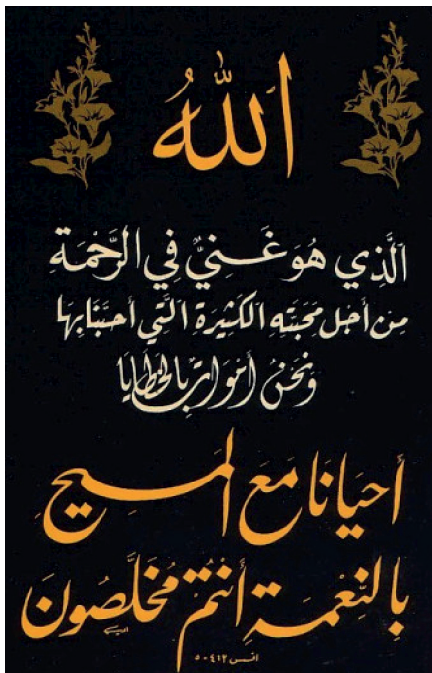 اَللهُ
اَلَّذِي هُوَ غَنِيٌّ فِي الرَّحْمَةِ
مِن أَجْل مَحَبَّتِهِ الكَثِيرَةِ الَّتِي أَحَبَّنَا بِهَا
وَنَحْنُ أَمْوَاتٌ بِالخَطَايَا
أَحيَانَا مَعَ المَسِيحِ
بِالنِّعْمَةِ أَنْتُم مُخَلَّصُونَ